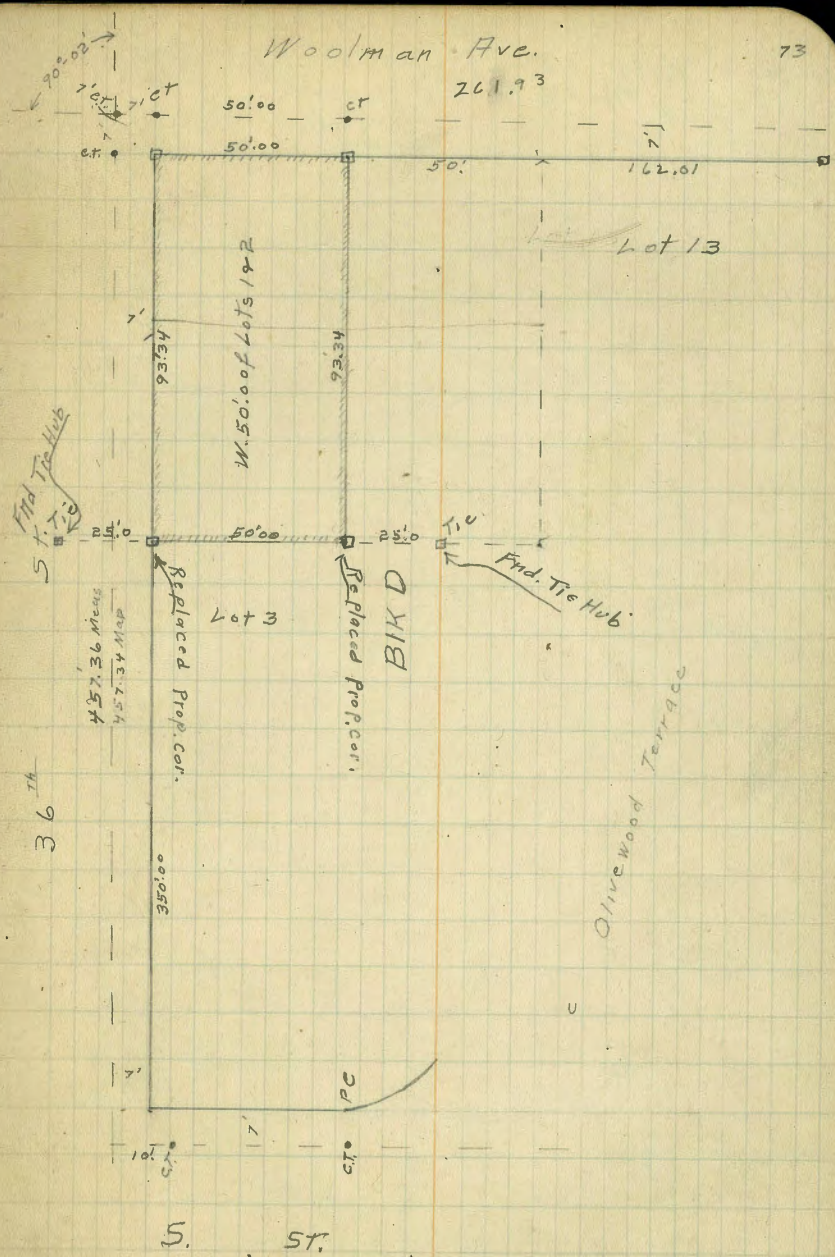 Woolman Ave.
73
90°-02'
261.93
7'
c.t.
7'
ct
50.00
ct
7'
c.t.
50.00
50.
7'
162.01
Lot 13
7'
93.34
W. 50.0 of Lots 1 & 2
93.34
Fnd Tie Hub
St.
25.0
50.00
25.0
Fnd. Tie Hub
Replaced Prop. cor.
Lot 3
Replaced Prop. cor.
Blk D
457.36 Meas
457.34 Map
36 Th
Olivewood Terrace
350.00
7'
PC
7'
10.
C.T.
C.T.
S. ST.